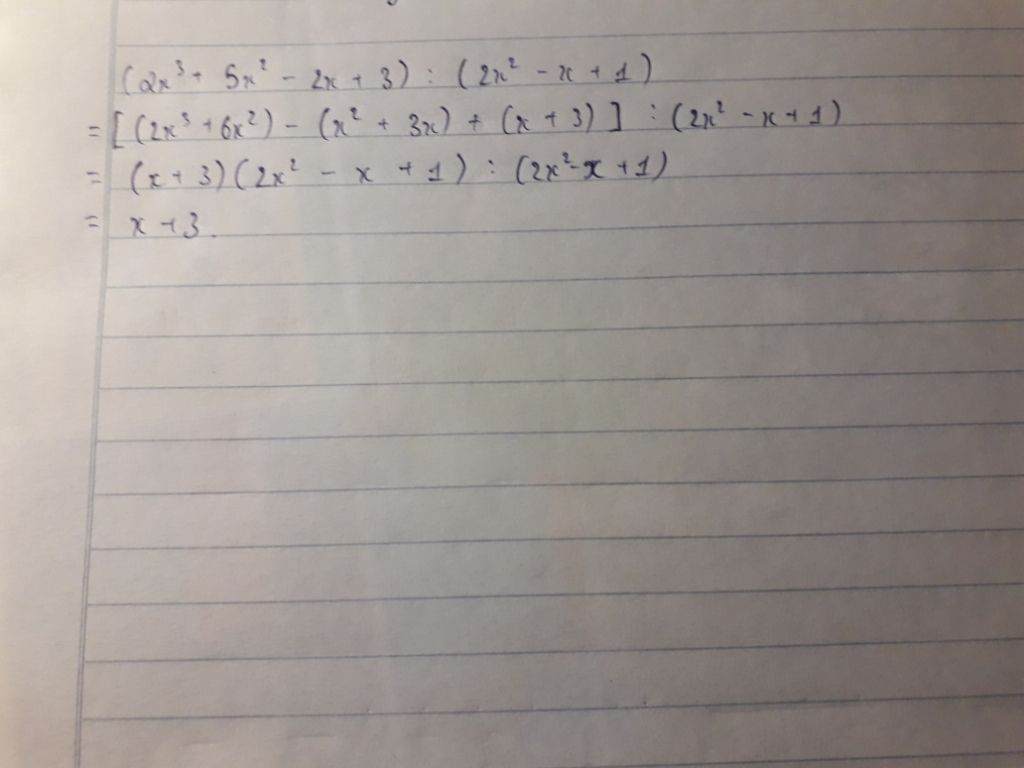 (2x³ + 5x² - 2x + 3) : (2x² - x + 1)
= [(2x³ + 6x²) - (x² + 3x) + (x + 3)] : (2x² - x + 1)
= (x + 3)(2x² - x + 1) : (2x² - x + 1)
= x + 3.